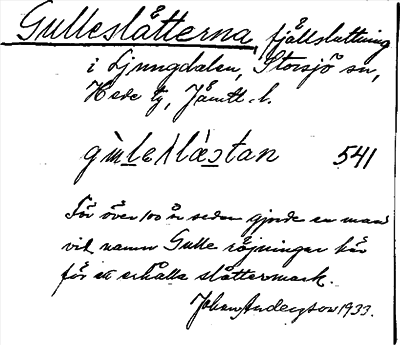 Gulleslåtterna, fjällsluttning
i Ljungdalen, Storsjö sn,
Hede tg, Jämtl. l.
541
För över 100 år sedan gjorde en man
vid namn Gulle röjningar här
för att erhålla slåttermark.
Johan Andersson 1933.